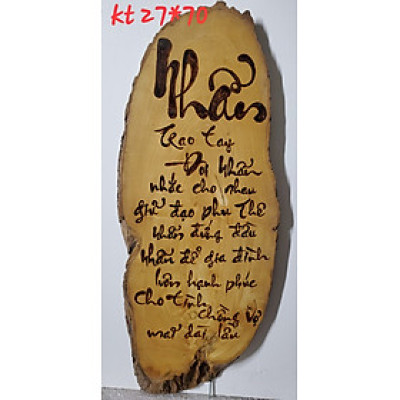 kt 27*70
Nhẫn
Trao tay
Đôi Nhẫn
nhắc cho nhau
giữ đạo phu thê
nhẫn đứng đầu
Nhẫn để gia đình
luôn hạnh phúc
Cho tình
chồng vợ
mãi dài lâu